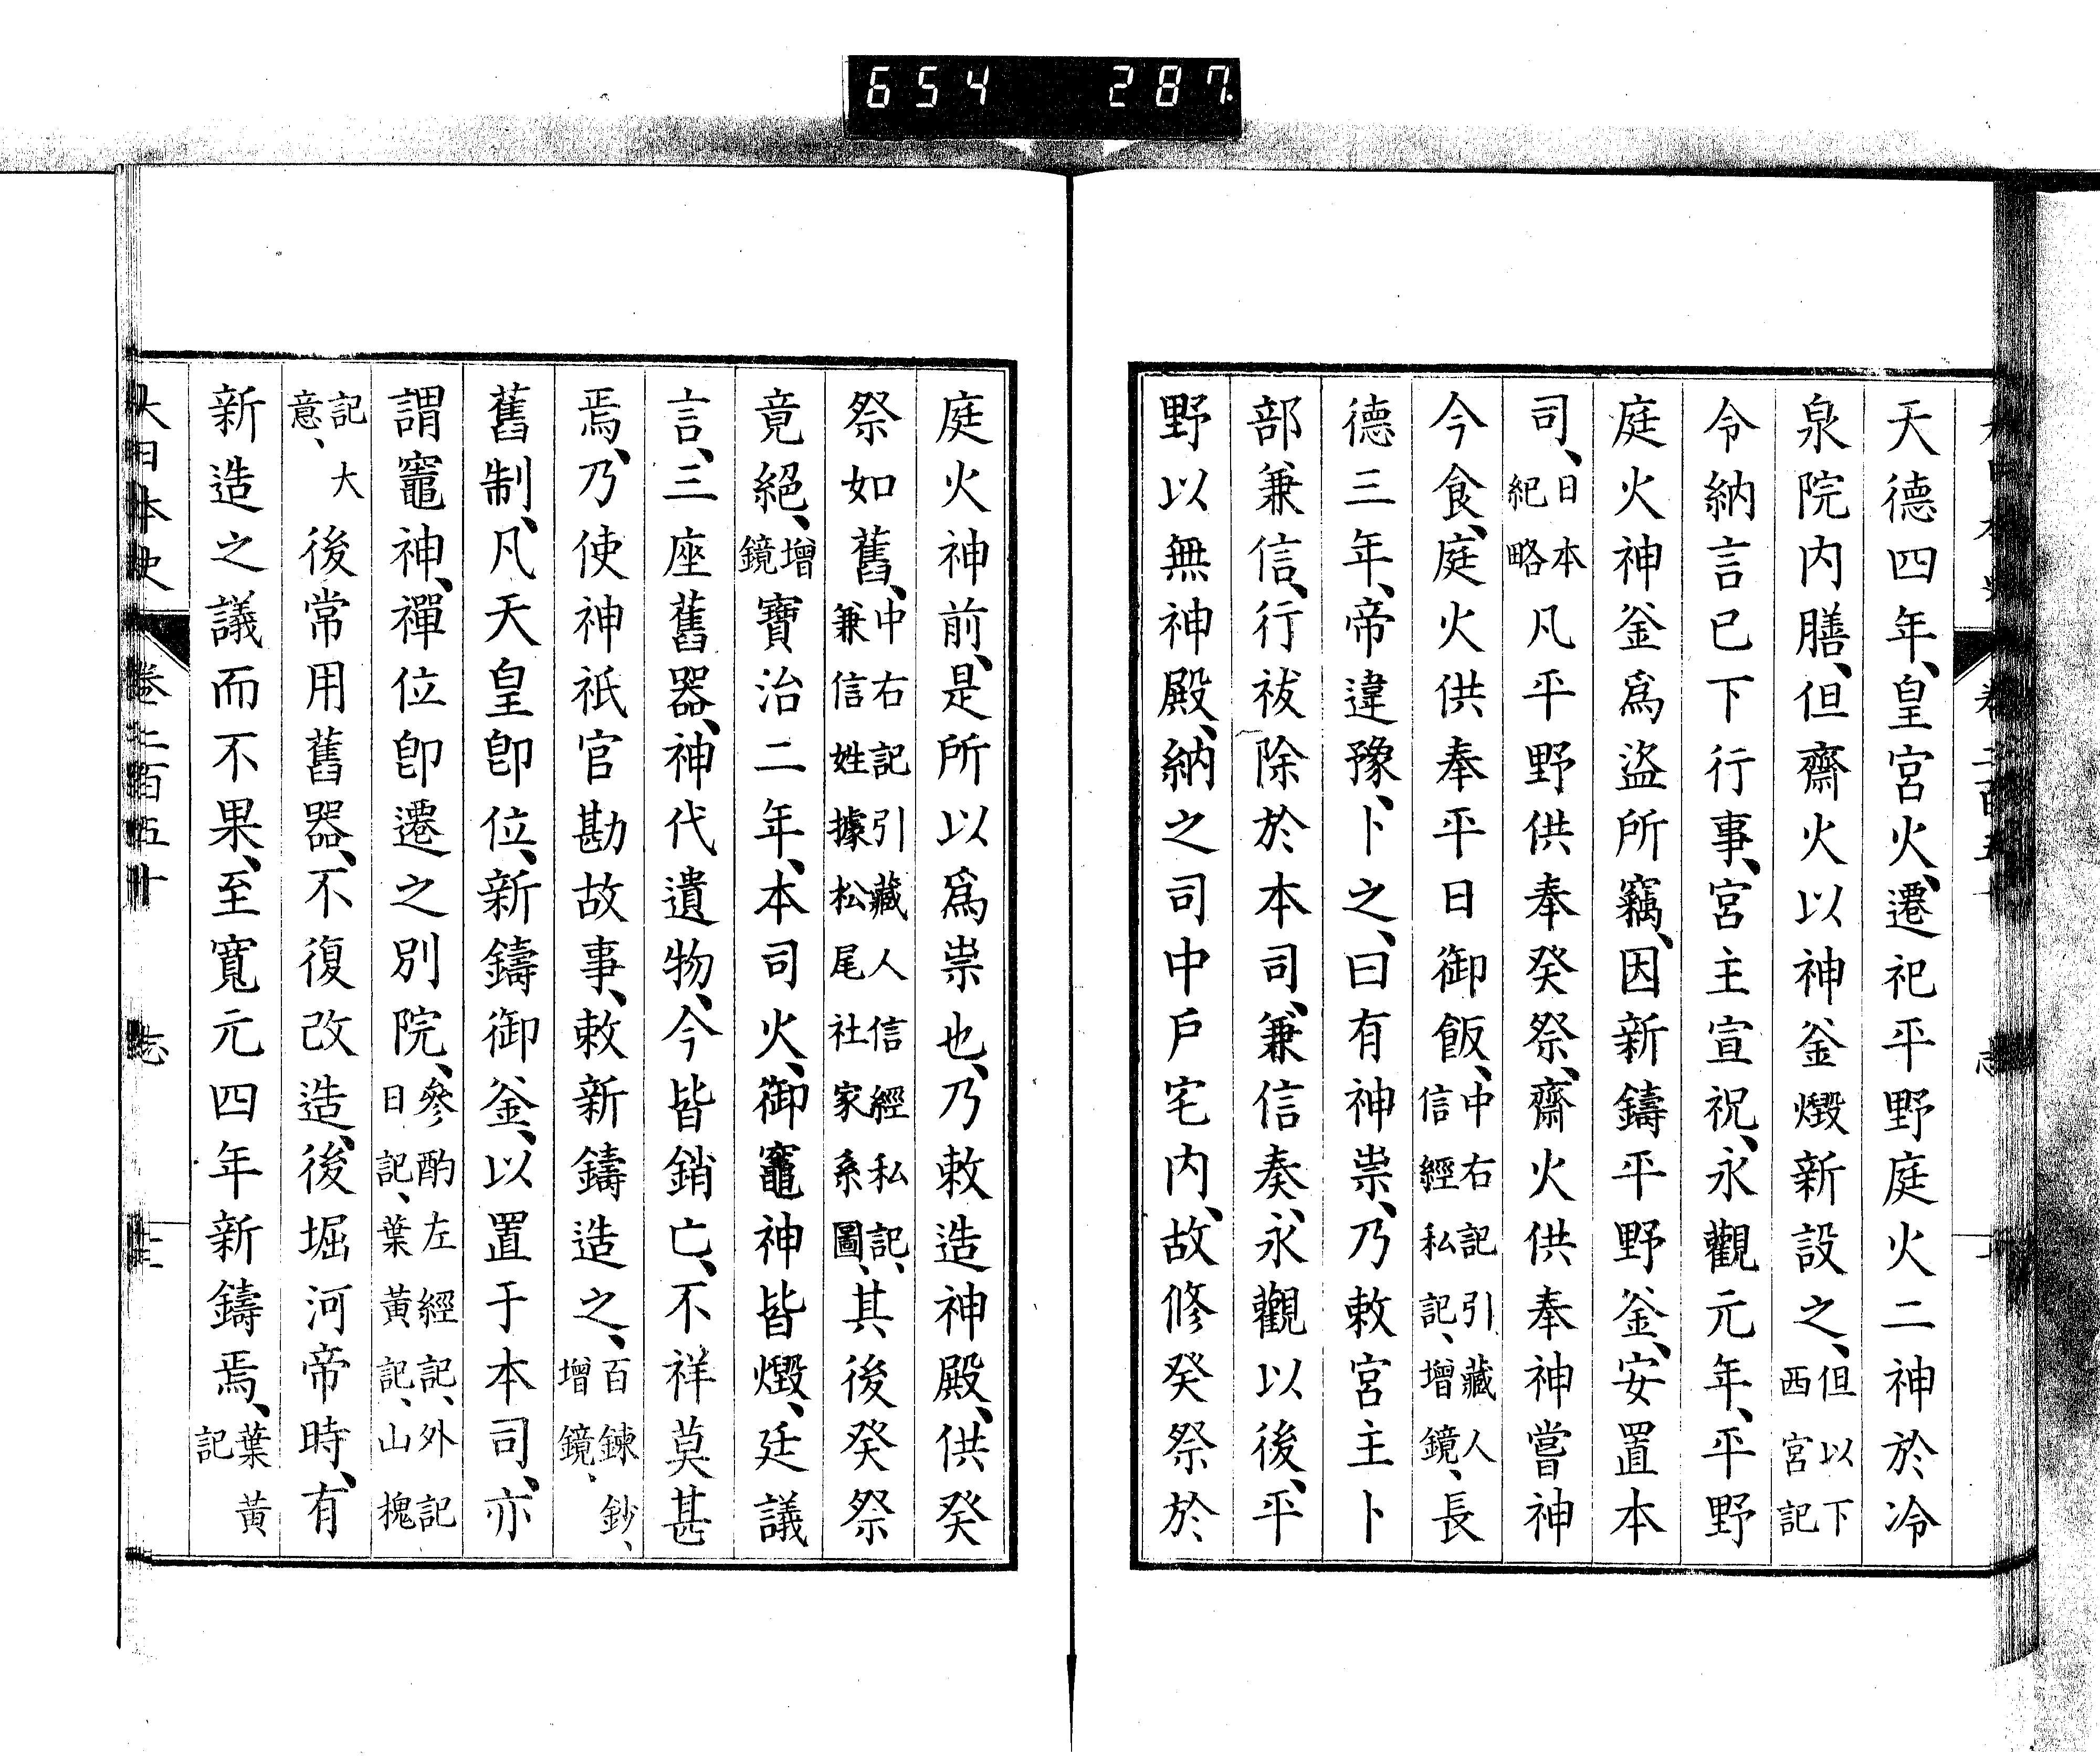 654 287.
大日本史 卷二百五十 志
天德四年、皇宮火、遷祀平野庭火二神於冷
泉院内膳、但齋火以神釜燬新設之、但以下西宮記
令納言已下行事、宮主宣祝、永觀元年、平野
庭火神釜爲盜所竊、因新鑄平野釜、安置本
司、日本紀略凡平野供奉癸祭、齋火供奉神嘗神
今食、庭火供奉平日御飯、中右記引藏人信經私記、增鏡、長
德三年、帝違豫、卜之、曰有神祟、乃敕宮主卜
部兼信、行祓除於本司、兼信奏、永觀以後、平
野以無神殿、納之司中戶宅内、故修癸祭於
庭火神前、是所以爲祟也、乃敕造神殿、供癸
祭如舊、中右記引藏人信經私記、兼信姓據松尾社家系圖、其後癸祭
竟絕、增鏡寶治二年、本司火、御竈神皆燬、廷議
言、三座舊器、神代遺物、今皆銷亡、不祥莫甚
焉、乃使神祇官勘故事、敕新鑄造之、百鍊鈔、增鏡、
舊制、凡天皇卽位、新鑄御釜、以置于本司、亦
謂竈神、禪位卽遷之別院、參酌左經記、外記日記、葉黃記、山槐
記大意、後常用舊器、不復改造、後堀河帝時、有
新造之議而不果、至寬元四年新鑄焉、葉黃記
大日本史 卷二百五十 志